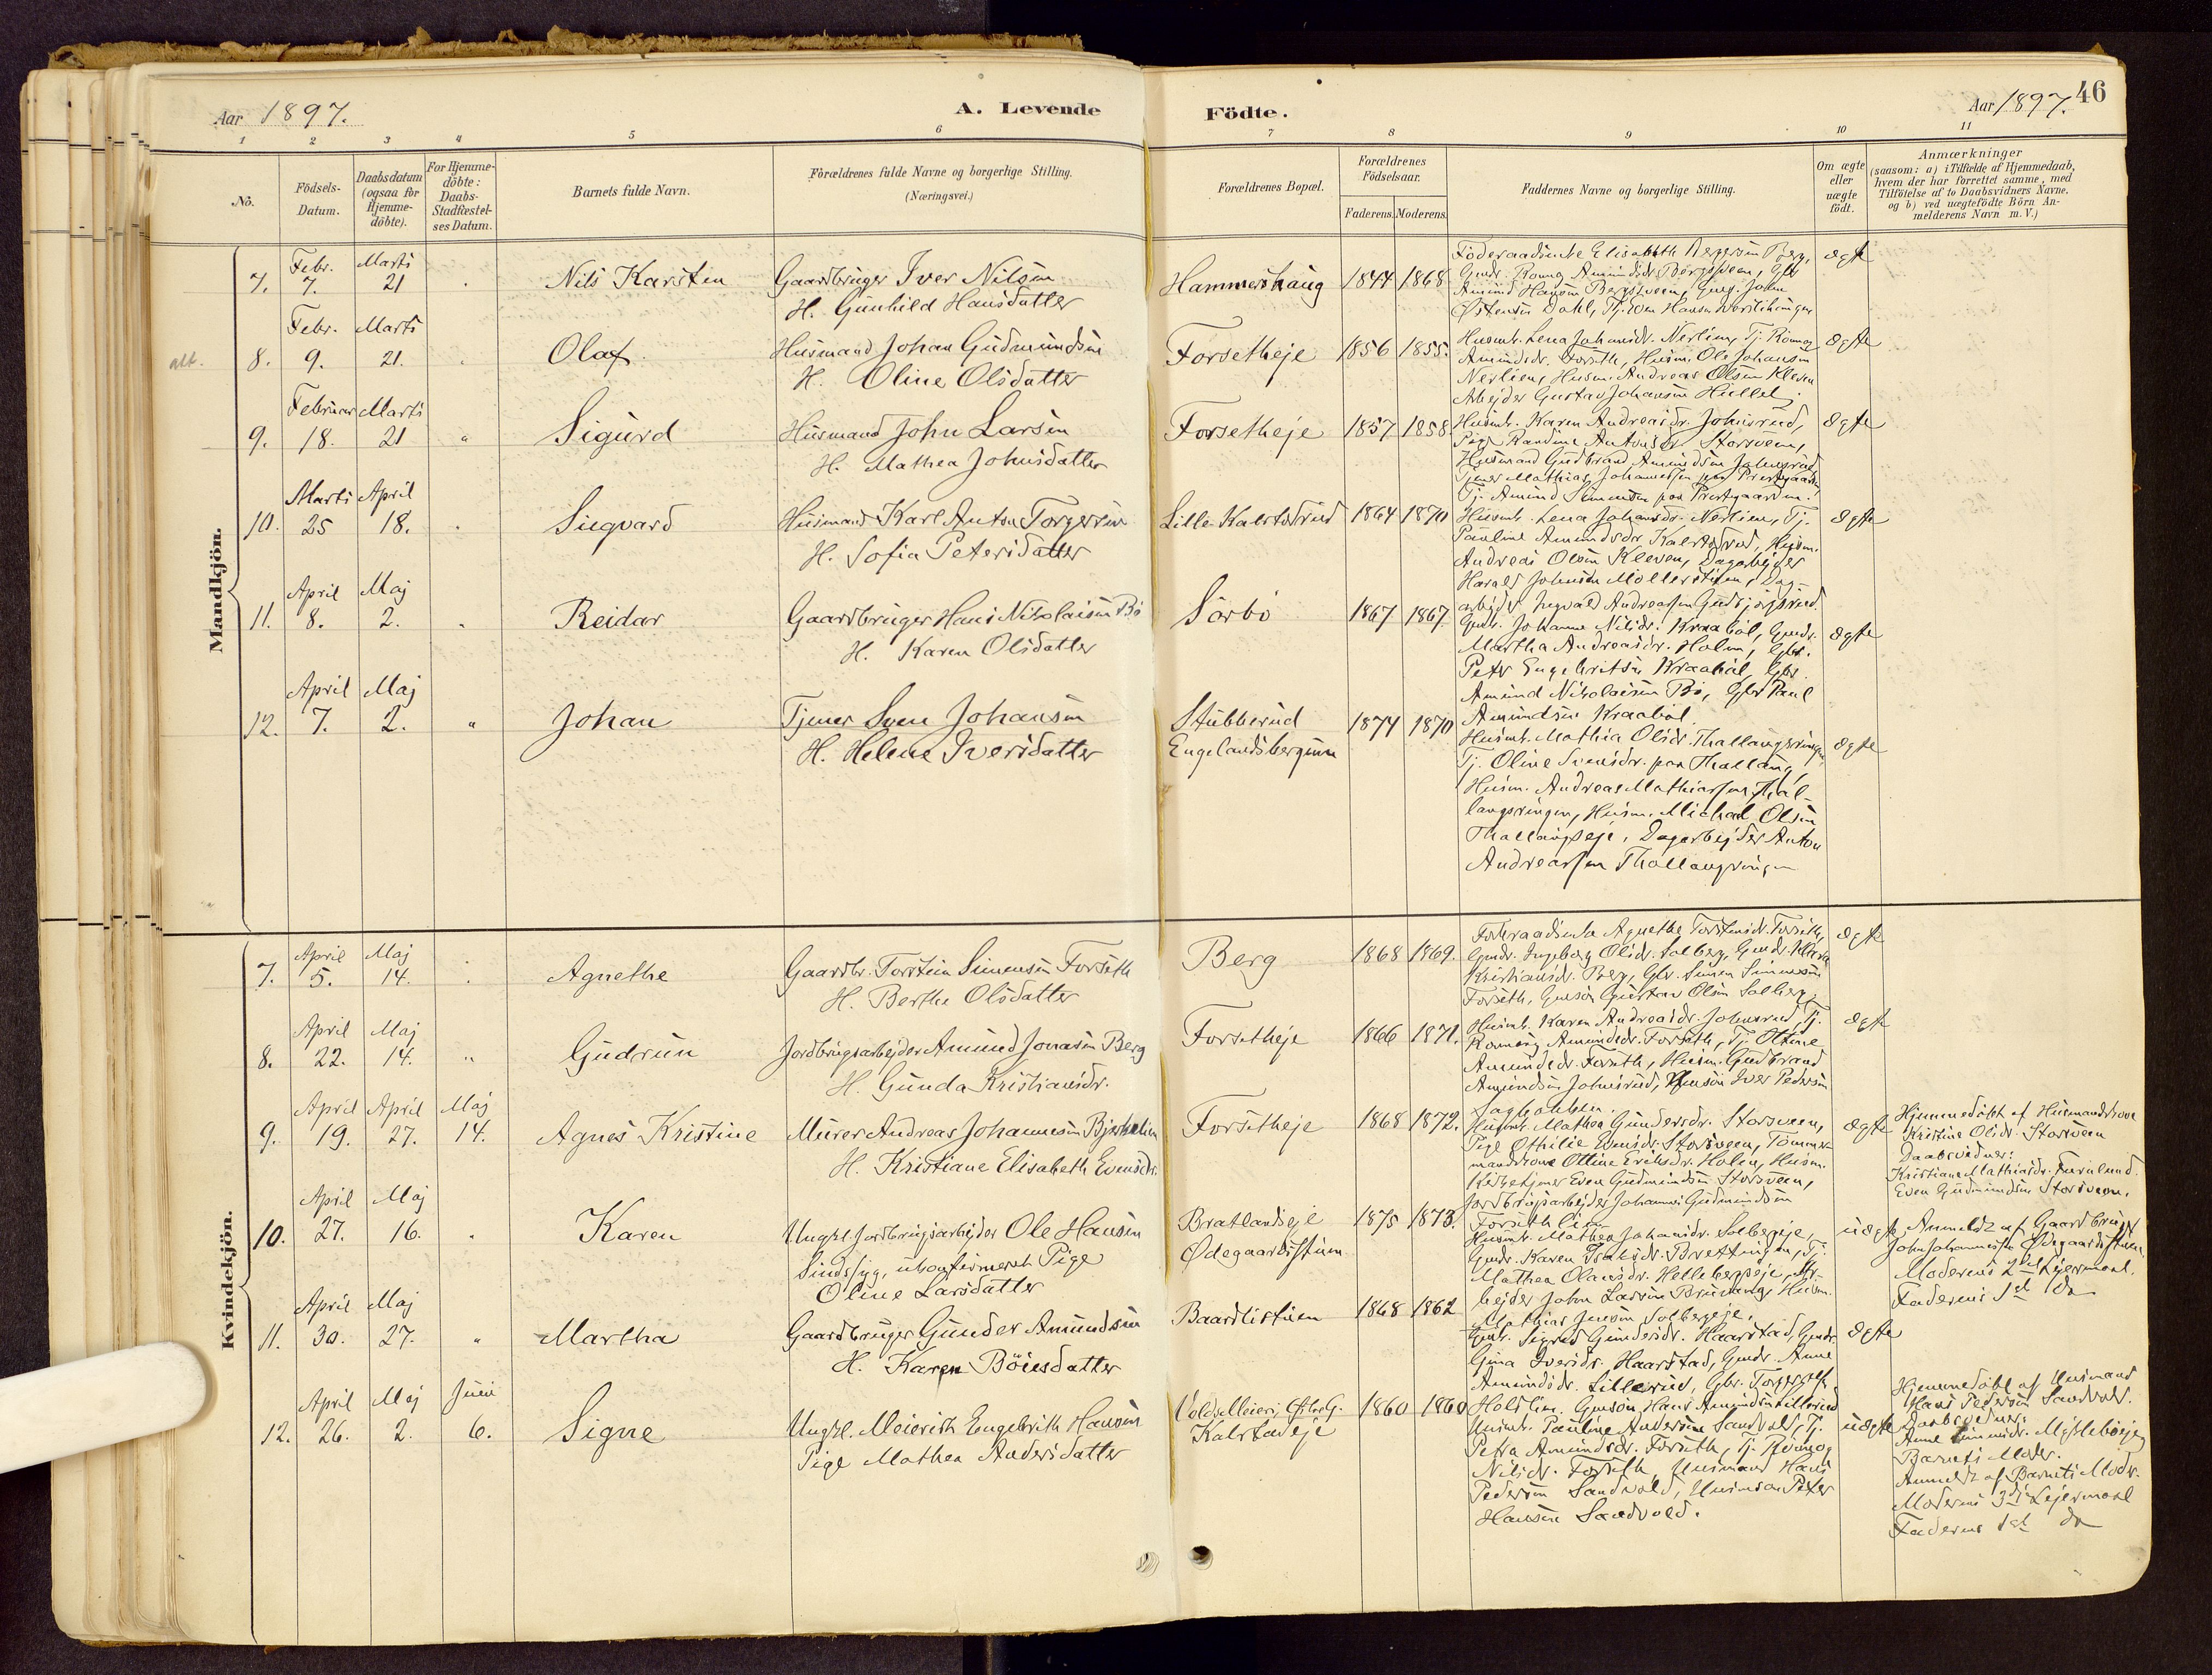 Aar 1897.
A. Levende
Födte.
Aar 1897.
46
1 2 3 4 5 6 7 8 9 10 11
No.
Födsels-Datum.
Daabsdatum (ogsaa for Hjemmedöbte).
For Hjemmedöbte: Daabs-Stadfæstelses Datum.
Barnets fulde Navn.
Forældrenes fulde Navne og borgerlige Stilling.
(Næringsvei.)
Forældrenes Bopæl.
Forældrenes Födselsaar.
Faderens. Moderens.
Faddernes Navne og borgerlige Stilling.
Om ægte eller uægte födt.
Anmærkninger
(saasom: a) i Tilfælde af Hjemmedaab, hvem der har forrettet samme, med Tilföielse af to Daabsvidners Navne. og b) ved uægtefödte Börn Anmelderens Navn m. V.)
Mandkjön.
7. Febr. 7. Marts 21 Nils Karsten
Gaardbruger Iver Nilsen
H. Gunhild Hansdatter
Hammershaug 1844 1868
Amund Hansen Bergsveen,
ægte
alt.
8. Febr. 9. Marts 21. Olaf
Husmand Johan Gudmundsen
H. Oline Olsdatter
Forsetheje 1856 1855.
Husmk. Lena Johansdr. Nerlien, Tj. Ronnog
Amundsdr. Forseth, Husm. Ole Johansen
Nerlien, Husm. Andreas Olsen Kleven
Arbejder Gustav Johansen
ægte
9. Februar 18. Marts 21 " Sigurd
Husmand John Larsen
H. Mathea Johnsdatter
Forsetheje 1857 1858
Husmk. Karen Andreasdr. Johnsrud,
Pige Randine Antonsdr. Storsveen,
Husmand Gudbrand Amundsen Johnsrud,
Tjener Mathias Johannessen paa Prestgaarden
Tj. Amund Simensen paa Prestgaarden.
ægte
10. Marts 25 April 18. Sigvard
Husmand Karl Anton Torgersen
H. Sofia Petersdatter
Lille-Kalstadrud 1864 1870
Husmk. Lena Johansdr. Nerlien, Tj.
Pauline Amundsdr. Kalstadrud, Husm.
Andreas Olsen Kleven, Dagarbejder
Harald Johnsen Möllerstuen, Dag-
arbejder Ingvald Andreassen
ægte
11. April 8. Maj 2. Reidar
Gaardbruger Hans Nikolaisen Bö
H. Karen Olsdatter
Sörbö 1867 1867
Johanne Nilsdr. Kraaböl, Gmdr.
Martha Andreasdr. Holm, Gbr.
Peter Engebritsen Kraaböl, Gbr.
Amund Nikolaisen Bö, Gbr Paul
Amundsen Kraaböl.
ægte
12. April 7. Maj 2. " Johan
Tjener Sven Johansen
H. Helene Iversdatter
Stubberud
Engelandsbergene 1874 1870
Husmk. Mathia Olsdr. Thallaugsringen
Tj. Oline Svensdr. paa Thallaug,
Husm. Andreas Mathiassen Thal-
laugsringen, Husm. Michael Olsen
Thallaugseje, Dagarbejder Anton
Andreassen Thallaugsringen
ægte
Kvindekjön.
7. April 5. Maj 14. Agnethe
Gaardbr. Torstein Simensen Forseth
H. Berthe Olsdatter
Berg 1868 1869
Föderaadsenke Agnethe Torstensdr. Forseth,
Gmdr. Ingeborg Olsdr. Solberg, Gmdr. Klara
Kristiansdr. Berg, Gbr. Simen Simensen
Forseth, Gmsön Gustav Olsen Solberg
ægte
8. April 22. Maj 14. " Gudrun
Jordbrugsarbejder Amund Jonasen Berg
H. Gunda Kristiansdr.
Forsetheje 1866 1871.
Husmk. Karen Andreasdr. Johnsrud, Tj.
Ronnog Amundsdr. Forseth, Tj. Oline
Amundsdr. Forseth, Husm. Gudbrand
Amundsen Johnsrud, Husmsön Iver Pedersen
ægte
9. April 19. April 27. Maj 14. Agnes Kristine
Murer Andreas Johannesen Bjerkelien
H. Kristiane Elisabeth Evensdr.
Forsetheje 1868 1872.
Husmk. Mathea Gundersdr. Storsveen,
Pige Othilie Evensdr. Storsveen, Tömmer-
mandskone Olline Eriksdr. Holen, Husm.
Kirketjener Even Gudmundsen Storsveen,
Jordbrugsarbejder Johannes Gudmundsen
Forsethlien
ægte
Hjemmedöbt af Husmandskone
Kristine Olsdr. Storsveen
Daabsvidner:
Kristiane Mathiasdr. Furulund.
Even Gudmundsen Storsveen.
10. April 27. Maj 16. Karen
Ungkl. Jordbrugsarbejder Ole Hansen
Sindssyg, ukonfirmeret Pige
Oline Larsdatter
Bratlandseje
Ødegaardsstuen 1875 1873.
Husmk. Mathea Johansdr. Solbergeje,
Gmdr. Karen
Mathea Olausdr. Hellebergseje, Ar-
bejder John Larsen
Mathias Jensen Solbergeje.
uægte
Anmeldt af Gaardbruger
John Johannessen Ødegaardsstuen.
Moderens 2det Lejermaal.
Faderens 1ste do
11. April 30. Maj 27. " Martha
Gaardbruger Gunder Amundsen
H. Karen Böiesdatter
Baardlistuen 1868 1862
Sigrid Gundersdr. Haarstad, Gmdr.
Gina Iversdr. Haarstad, Gmdr. Anne
Amundsdr. Lillerud, Gbr.
Gmsön Hans Amundsen Lillerud
ægte
12. April 26. Maj 2. Juni 6. Signe
Ungkl. Meierist Engebrith Hansen
Pige Mathea Andersdatter
Volds Meieri,
Kalstadeje 1860 1860
Husmk. Pauline Andersen Sandvold, Tj.
Petra Amundsdr. Forseth, Tj. Ronnog
Nilsdr. Forseth, Husmand Hans
Pedersen Sandvold, Husmsön Peter
Hansen Sandvold.
uægte
Hjemmedöbt af Husmand
Hans Pedersen Sandvold.
Daabsvidner:
Anne
Barnets Moder.
Anmeldt af Barnets Moder.
Moderens 3die Lejermaal
Faderens 1ste do